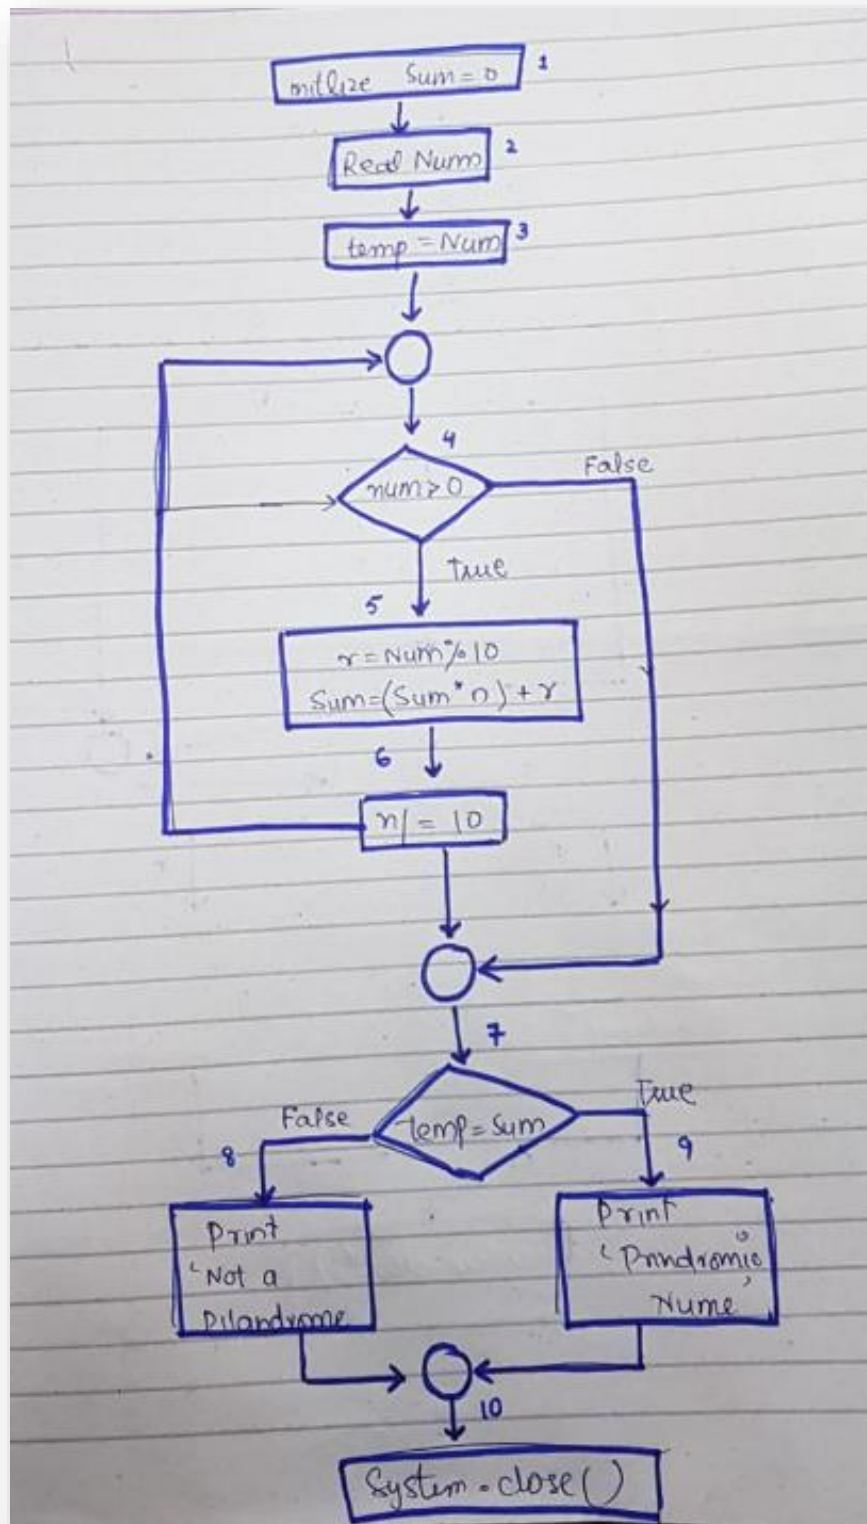 mitlize Sum = 0 1
Read Num 2
temp = Num 3
4
num > 0 False
True
5
r = Num % 10
Sum = (Sum * n) + r
6
n/ = 10
7
temp = Sum
False True
8 9
Print
'Not a
Pilandrome
Print
'Prindromic
Nume'
10
System.close()